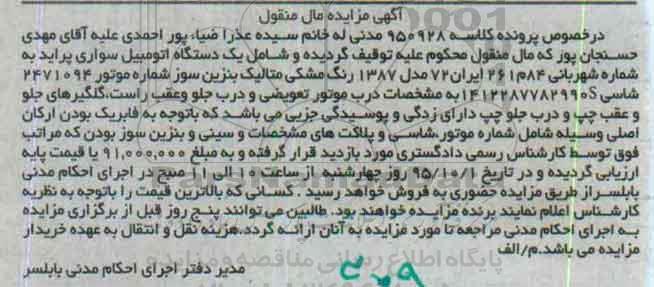 آگهی مزایده مال منقول
درخصوص پرونده کلاسه ۹۵۰۹۲۸ مدنی له خانم سیده عذرا ضیاء پور احمدی علیه آقای مهدی
حسنجان پور که مال منقول محکوم علیه توقیف گردیده و شامل یک دستگاه اتومبیل سواری پراید به
شماره شهربانی ۲۶۱م۸۴ ایران۷۲ مدل ۱۳۸۷ رنگ مشکی متالیک بنزین سوز شماره موتور ۲۴۷۱۰۹۴
شاسی S۱۴۱۲۲۸۷۷۸۲۹۹۰ به مشخصات درب موتور تعویضی و درب جلو وعقب راست،گلگیرهای جلو
و عقب چپ و درب جلو چپ دارای زدگی و پوسیدگی جزیی می باشد که باتوجه به فابریک بودن ارکان
اصلی وسیله شامل شماره موتور،شاسی و پلاکت های مشخصات و سینی و بنزین سوز بودن که مراتب
فوق توسط کارشناس رسمی دادگستری مورد بازدید قرار گرفته و به مبلغ ۹۱,۰۰۰,۰۰۰ یا قیمت پایه
ارزیابی گردیده و در تاریخ ۹۵/۱۰/۱ روز چهارشنبه از ساعت ۱۰ الی ۱۱ صبح در اجرای احکام مدنی
بابلسر از طریق مزایده حضوری به فروش خواهد رسید . کسانی که بالاترین قیمت را باتوجه به نظریه
کارشناس اعلام نمایند برنده مزایده خواهند بود. طالبین می توانند پنج روز قبل از برگزاری مزایده
به اجرای احکام مدنی مراجعه تا مورد مزایده به آنان ارائه گردد.هزینه نقل و انتقال به عهده خریدار
مزایده می باشد.م/الف
پایگاه اطلاع رسانی مناقصه و مزایده
مدیر دفتر اجرای احکام مدنی بابلسر